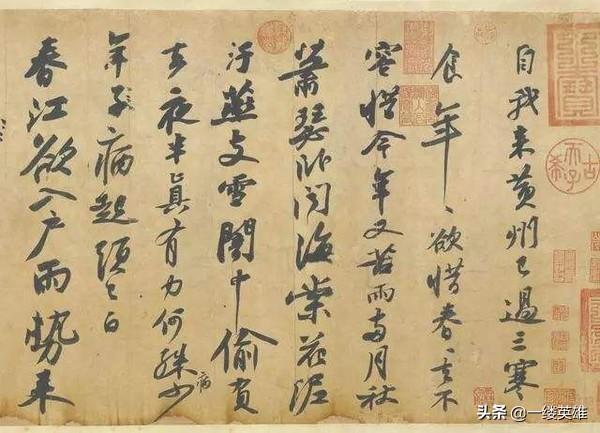 自我来黄州已過三寒
食年〻欲惜春〻去不
容惜今年又苦雨兩月秋
蕭瑟卧聞海棠花泥
汙燕支雪闇中偷負
去夜半真有力何殊少
病
年子病起頭已白
春江欲入户雨勢来
古希天子
头条 @一缕英雄